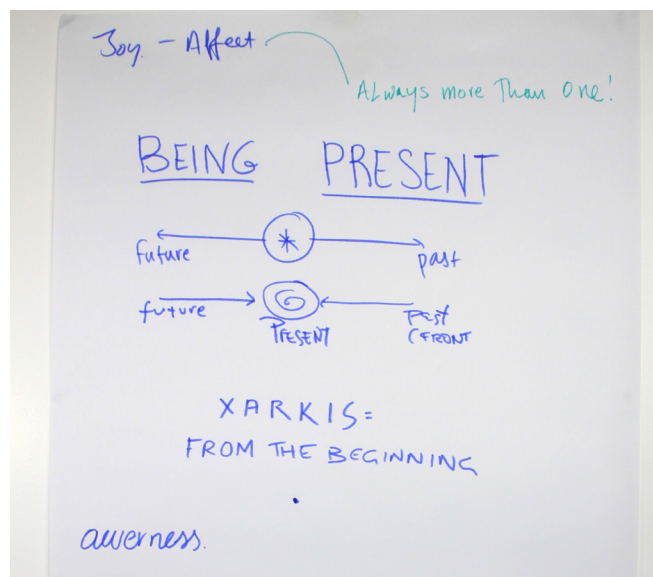 Joy. - Affect
Always more Than One!
BEING PRESENT
future past
future PRESENT Past
(FRONT
XARKIS =
FROM THE BEGINNING
awerness.